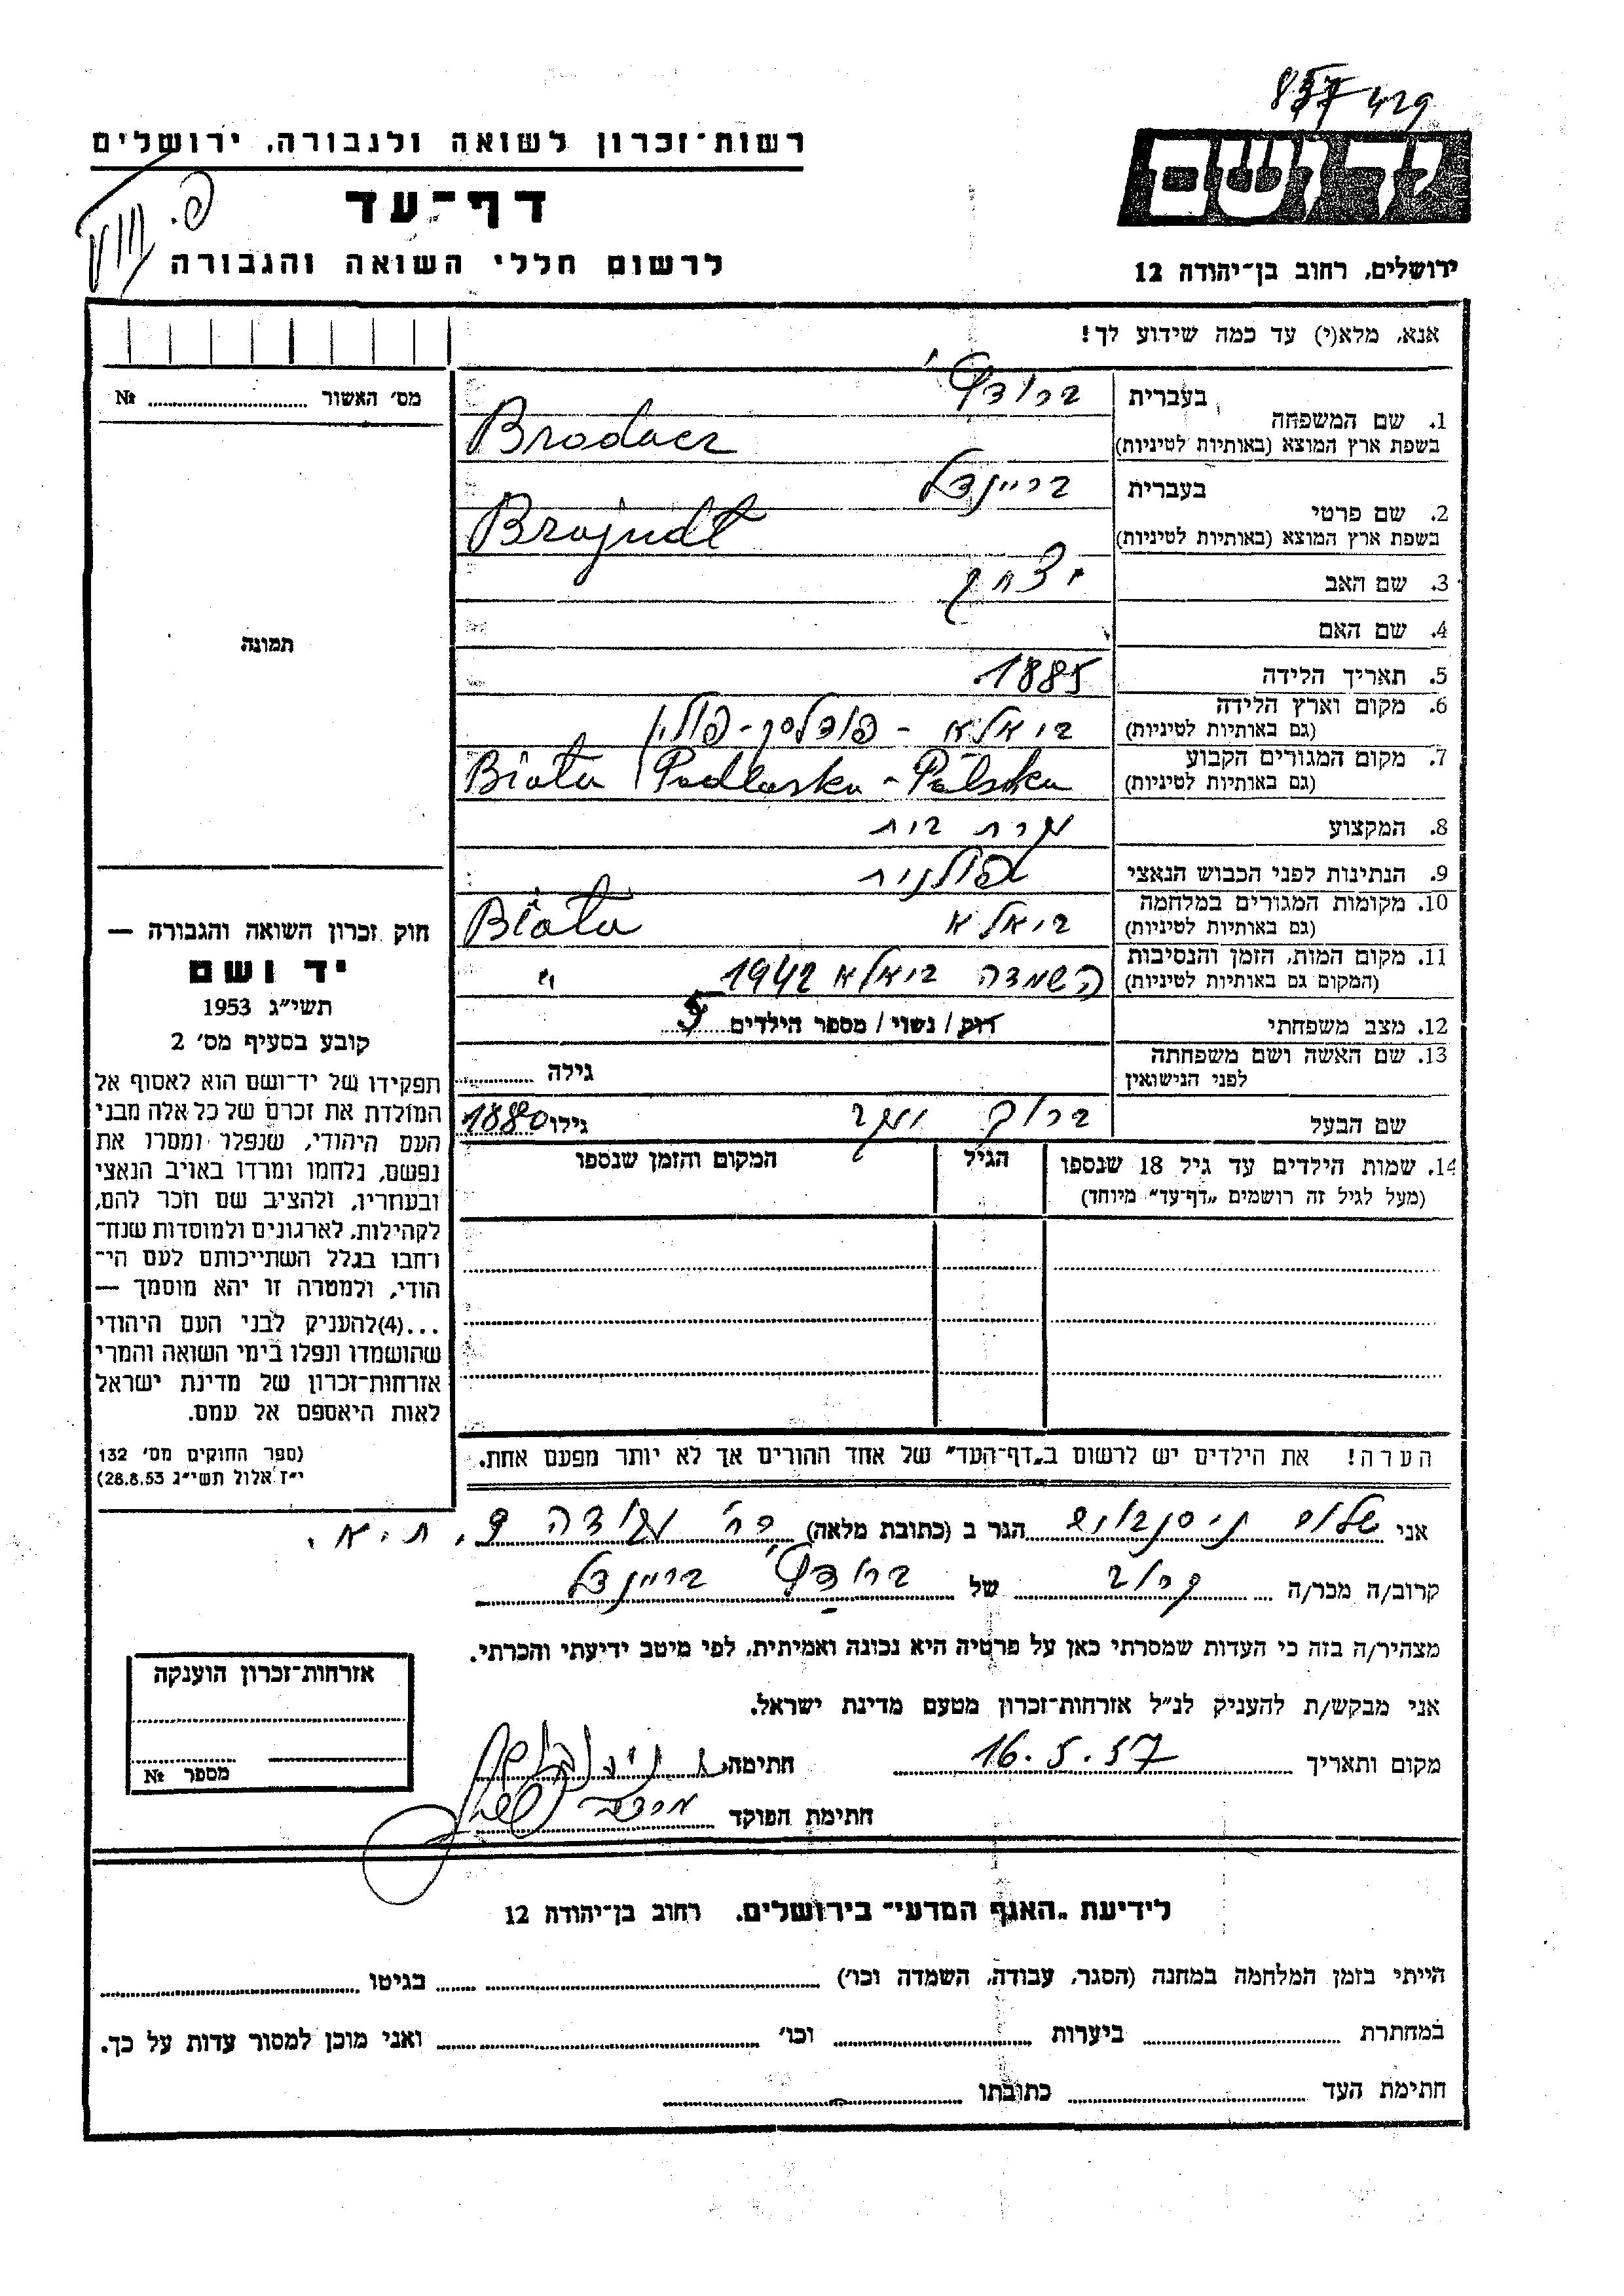 857 429
רשות־זכרון לשואה ולגבורה, ירושלים
יד ושם
דף־עד
לרשום חללי השואה והגבורה
ירושלים, רחוב בן־יהודה 12
אנא, מלא(י) עד כמה שידוע לך!
מס׳ האשור № 
תמונה
1. שם המשפחה
בעברית
בשפת ארץ המוצא (באותיות לטיניות)
Brodacz
2. שם פרטי
בעברית בריינדל
בשפת ארץ המוצא (באותיות לטיניות)
Brajndl
3. שם האב יצחק
4. שם האם
5. תאריך הלידה 1885
6. מקום וארץ הלידה ביאלא - פודלסק - פולין
(גם באותיות לטיניות)
7. מקום המגורים הקבוע
(גם באותיות לטיניות) Biała Podlaska - Polska
8. המקצוע עקרת בית
9. הנתינות לפני הכבוש הנאצי פולנית
10. מקומות המגורים במלחמה
(גם באותיות לטיניות) ביאלא Biała
11. מקום המות, הזמן והנסיבות
(המקום גם באותיות לטיניות) השמדה ביאלא 1942 "
12. מצב משפחתי רוק / נשוי / מספר הילדים 5
13. שם האשה ושם משפחתה
לפני הנישואין גילה
שם הבעל ברוך גילו 1880
14. שמות הילדים עד גיל 18 שנספו הגיל המקום והזמן שנספו
(מעל לגיל זה רושמים „דף־עד״ מיוחד)
הערה! את הילדים יש לרשום ב„דף־העד״ של אחד ההורים אך לא יותר מפעם אחת.
חוק זכרון השואה והגבורה —
יד ושם
תשי״ג 1953
קובע בסעיף מס׳ 2
תפקידו של יד־ושם הוא לאסוף אל
המולדת את זכרם של כל אלה מבני
העם היהודי, שנפלו ומסרו את
נפשם, נלחמו ומרדו באויב הנאצי
ובעוזריו, ולהציב שם וזכר להם,
לקהילות, לארגונים ולמוסדות שנח־
רחבו בגלל השתייכותם לעם הי־
הודי, ולמטרה זו יהא מוסמך —
...(4)להעניק לבני העם היהודי
שהושמדו ונפלו בימי השואה והמרי
אזרחות־זכרון של מדינת ישראל
לאות היאספם אל עמם.
(ספר החוקים מס׳ 132
י״ז אלול תשי״ג 28.8.53)
אני שלום ניסנבוים הגר ב (כתובת מלאה) רח׳ 9, ת.א.
קרוב/ה מכר/ה קרוב של בריינדל
מצהיר/ה בזה כי העדות שמסרתי כאן על פרטיה היא נכונה ואמיתית, לפי מיטב ידיעתי והכרתי.
אני מבקש/ת להעניק לנ״ל אזרחות־זכרון מטעם מדינת ישראל.
מקום ותאריך 16.5.57 חתימה
חתימת הפוקד
אזרחות־זכרון הוענקה
מספר №
לידיעת „האגף המדעי״ בירושלים, רחוב בן־יהודה 12
הייתי בזמן המלחמה במחנה (הסגר, עבודה, השמדה וכו׳) בגיטו
במחתרת ביערות וכו׳ ואני מוכן למסור עדות על כך.
חתימת העד כתובתו